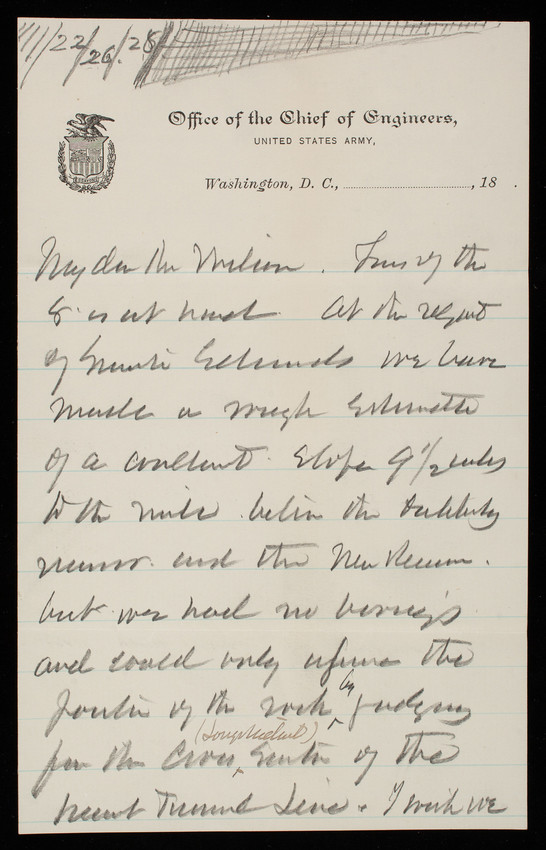 Office of the Chief of Engineers,
UNITED STATES ARMY,
Washington, D. C., , 18 .
My dear Mr Wilson. Yours of the
8 is at hand. At the request
of Senator Edmunds we have
made a rough Estimate
of a conduit. Slope 9 1/2 inches
to the mile. below the
and the New Reservoir.
but we had no borings
and could only the
of the rock by judging
(longitudinal)
the Cross Section of the
Tunnel Line. I wish we